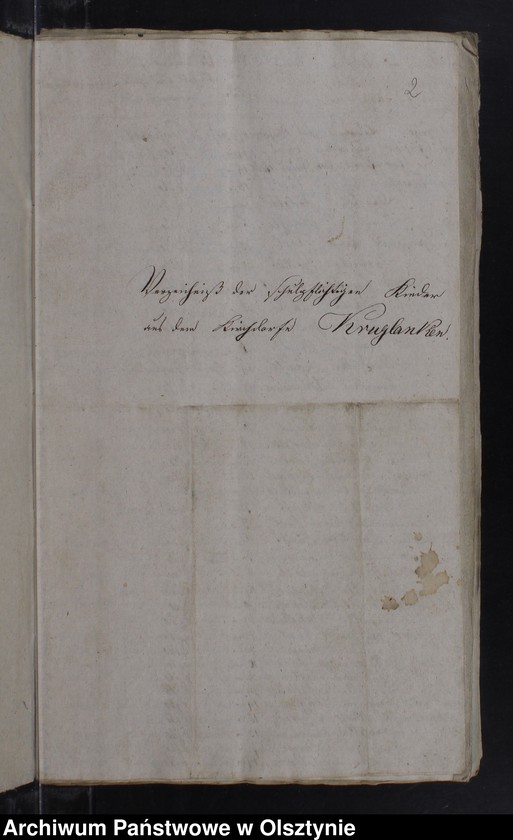 2
Verzeichniß der schulpflichtigen Kinder
aus dem Kirchdorfe Kruglanken.
Archiwum Państwowe w Olsztynie